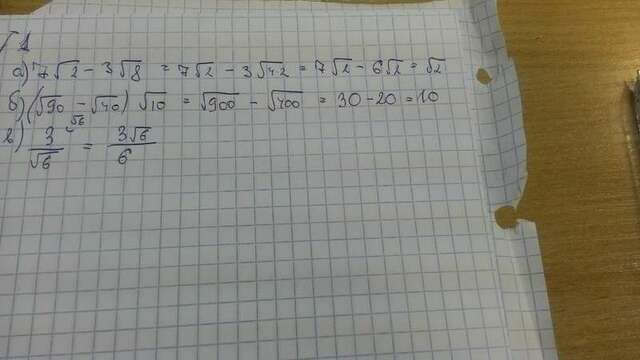 1
а) 7√2 - 3√8 = 7√2 - 3√4·2 = 7√2 - 6√2 = √2
б) (√90 - √40) √10 = √900 - √400 = 30 - 20 = 10
2) 3/√6 ^√6 = 3√6/6